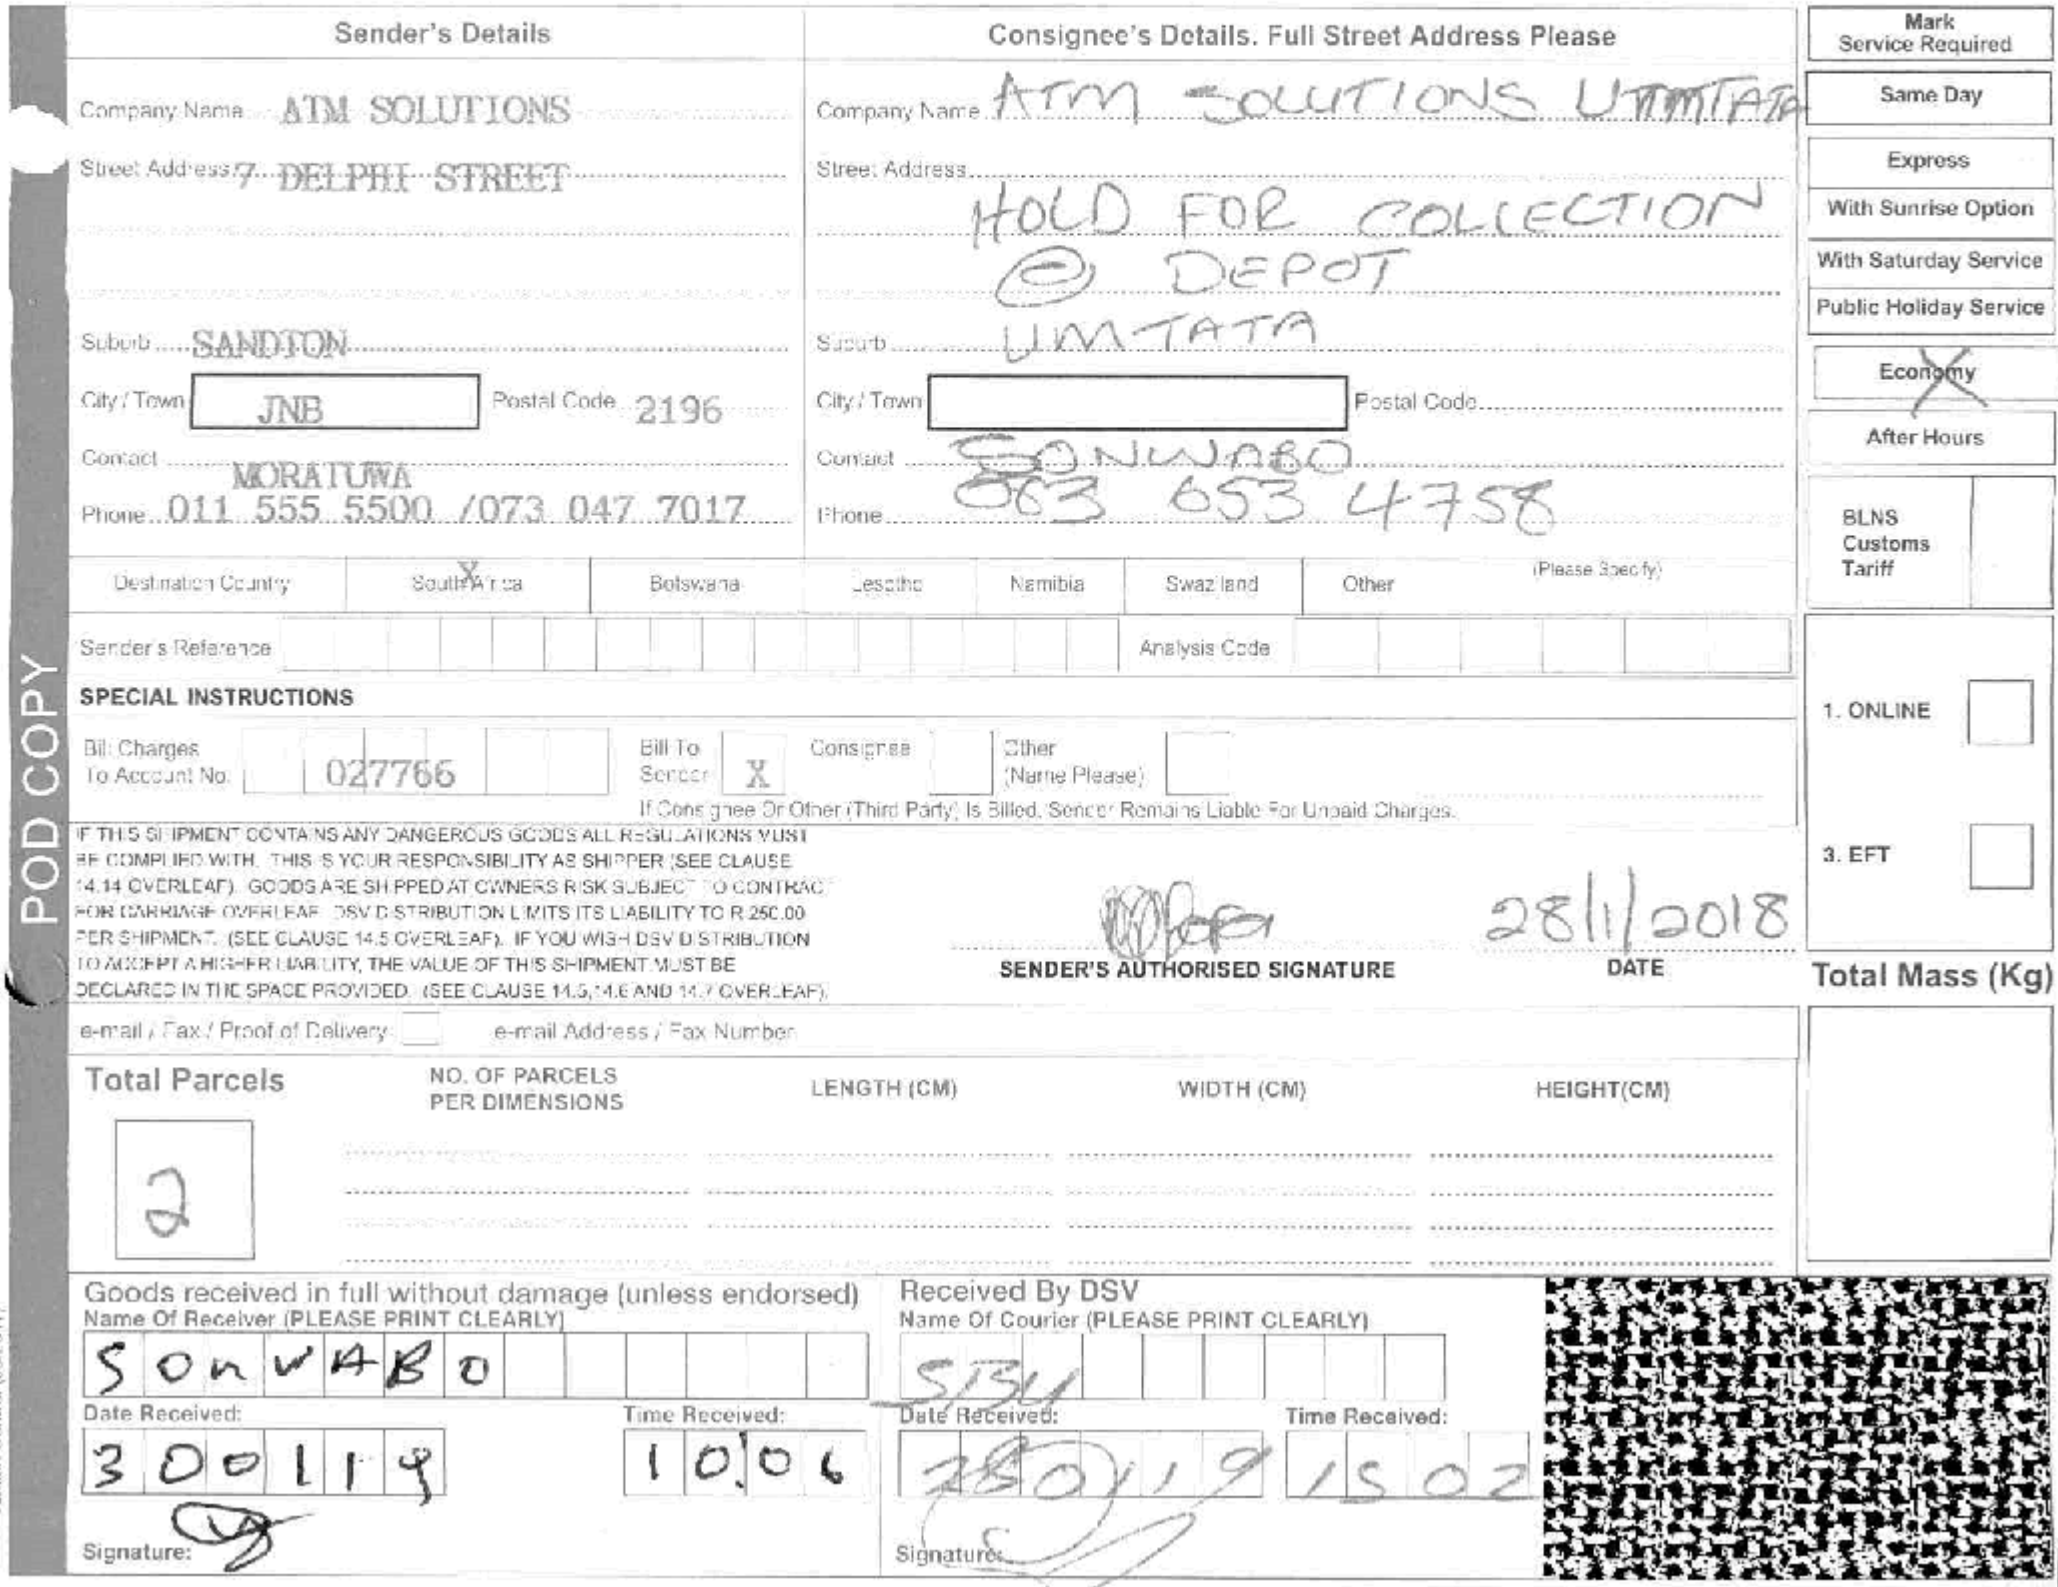 Sender's Details
Company Name ATM SOLUTIONS
Street Address 7 DELPHI STREET
Suburb SANDTON
City / Town JNB Postal Code 2196
Contact MORATUWA
Phone 011 555 5500 /073 047 7017
Consignee's Details. Full Street Address Please
Company Name ATM SOLUTIONS UMTATA
Street Address
HOLD FOR COLLECTION
@ DEPOT
Suburb UMTATA
City / Town Postal Code
Contact SONWABO
Phone 063 653 4758
Mark
Service Required
Same Day
Express
With Sunrise Option
With Saturday Service
Public Holiday Service
Economy X
After Hours
BLNS
Customs
Tariff
Destination Country South Africa X Botswana Lesotho Namibia Swaziland Other (Please Specify)
Sender's Reference Analysis Code
SPECIAL INSTRUCTIONS
Bill Charges
To Account No. 027766
Bill To
Sender X
Consignee
Other
(Name Please)
If Consignee Or Other (Third Party) Is Billed, Sender Remains Liable For Unpaid Charges.
1. ONLINE
3. EFT
IF THIS SHIPMENT CONTAINS ANY DANGEROUS GOODS ALL REGULATIONS MUST
BE COMPLIED WITH. THIS IS YOUR RESPONSIBILITY AS SHIPPER (SEE CLAUSE
14.14 OVERLEAF). GOODS ARE SHIPPED AT OWNERS RISK SUBJECT TO CONTRAC
FOR CARRIAGE OVERLEAF. DSV DISTRIBUTION LIMITS ITS LIABILITY TO R 250.00
PER SHIPMENT. (SEE CLAUSE 14.5 OVERLEAF). IF YOU WISH DSV DISTRIBUTION
TO ACCEPT A HIGHER LIABILITY, THE VALUE OF THIS SHIPMENT MUST BE
DECLARED IN THE SPACE PROVIDED. (SEE CLAUSE 14.5, 14.6 AND 14.7 OVERLEAF).
SENDER'S AUTHORISED SIGNATURE
28/1/2018
DATE
Total Mass (Kg)
e-mail / Fax / Proof of Delivery e-mail Address / Fax Number
POD COPY
Total Parcels
2
NO. OF PARCELS
PER DIMENSIONS
LENGTH (CM) WIDTH (CM) HEIGHT(CM)
Goods received in full without damage (unless endorsed)
Name Of Receiver (PLEASE PRINT CLEARLY)
SOnWABO
Date Received: Time Received:
300119 10:06
Signature:
Received By DSV
Name Of Courier (PLEASE PRINT CLEARLY)
SIBU
Date Received: Time Received:
280119 1502
Signature: